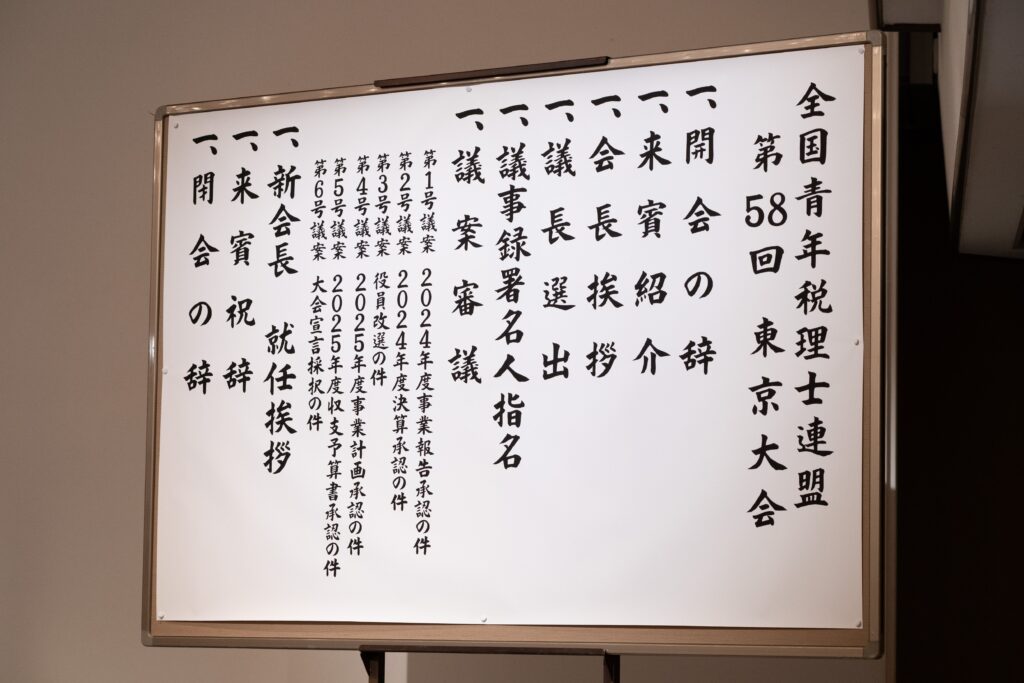 全国青年税理士連盟
第58回 東京大会
一、開会の辞
一、来賓紹介
一、会長挨拶
一、議長選出
一、議事録署名人指名
一、議案審議
第1号議案 2024年度事業報告承認の件
第2号議案 2024年度決算承認の件
第3号議案 役員改選の件
第4号議案 2025年度事業計画承認の件
第5号議案 2025年度収支予算書承認の件
第6号議案 大会宣言採択の件
一、新会長 就任挨拶
一、来賓祝辞
一、閉会の辞